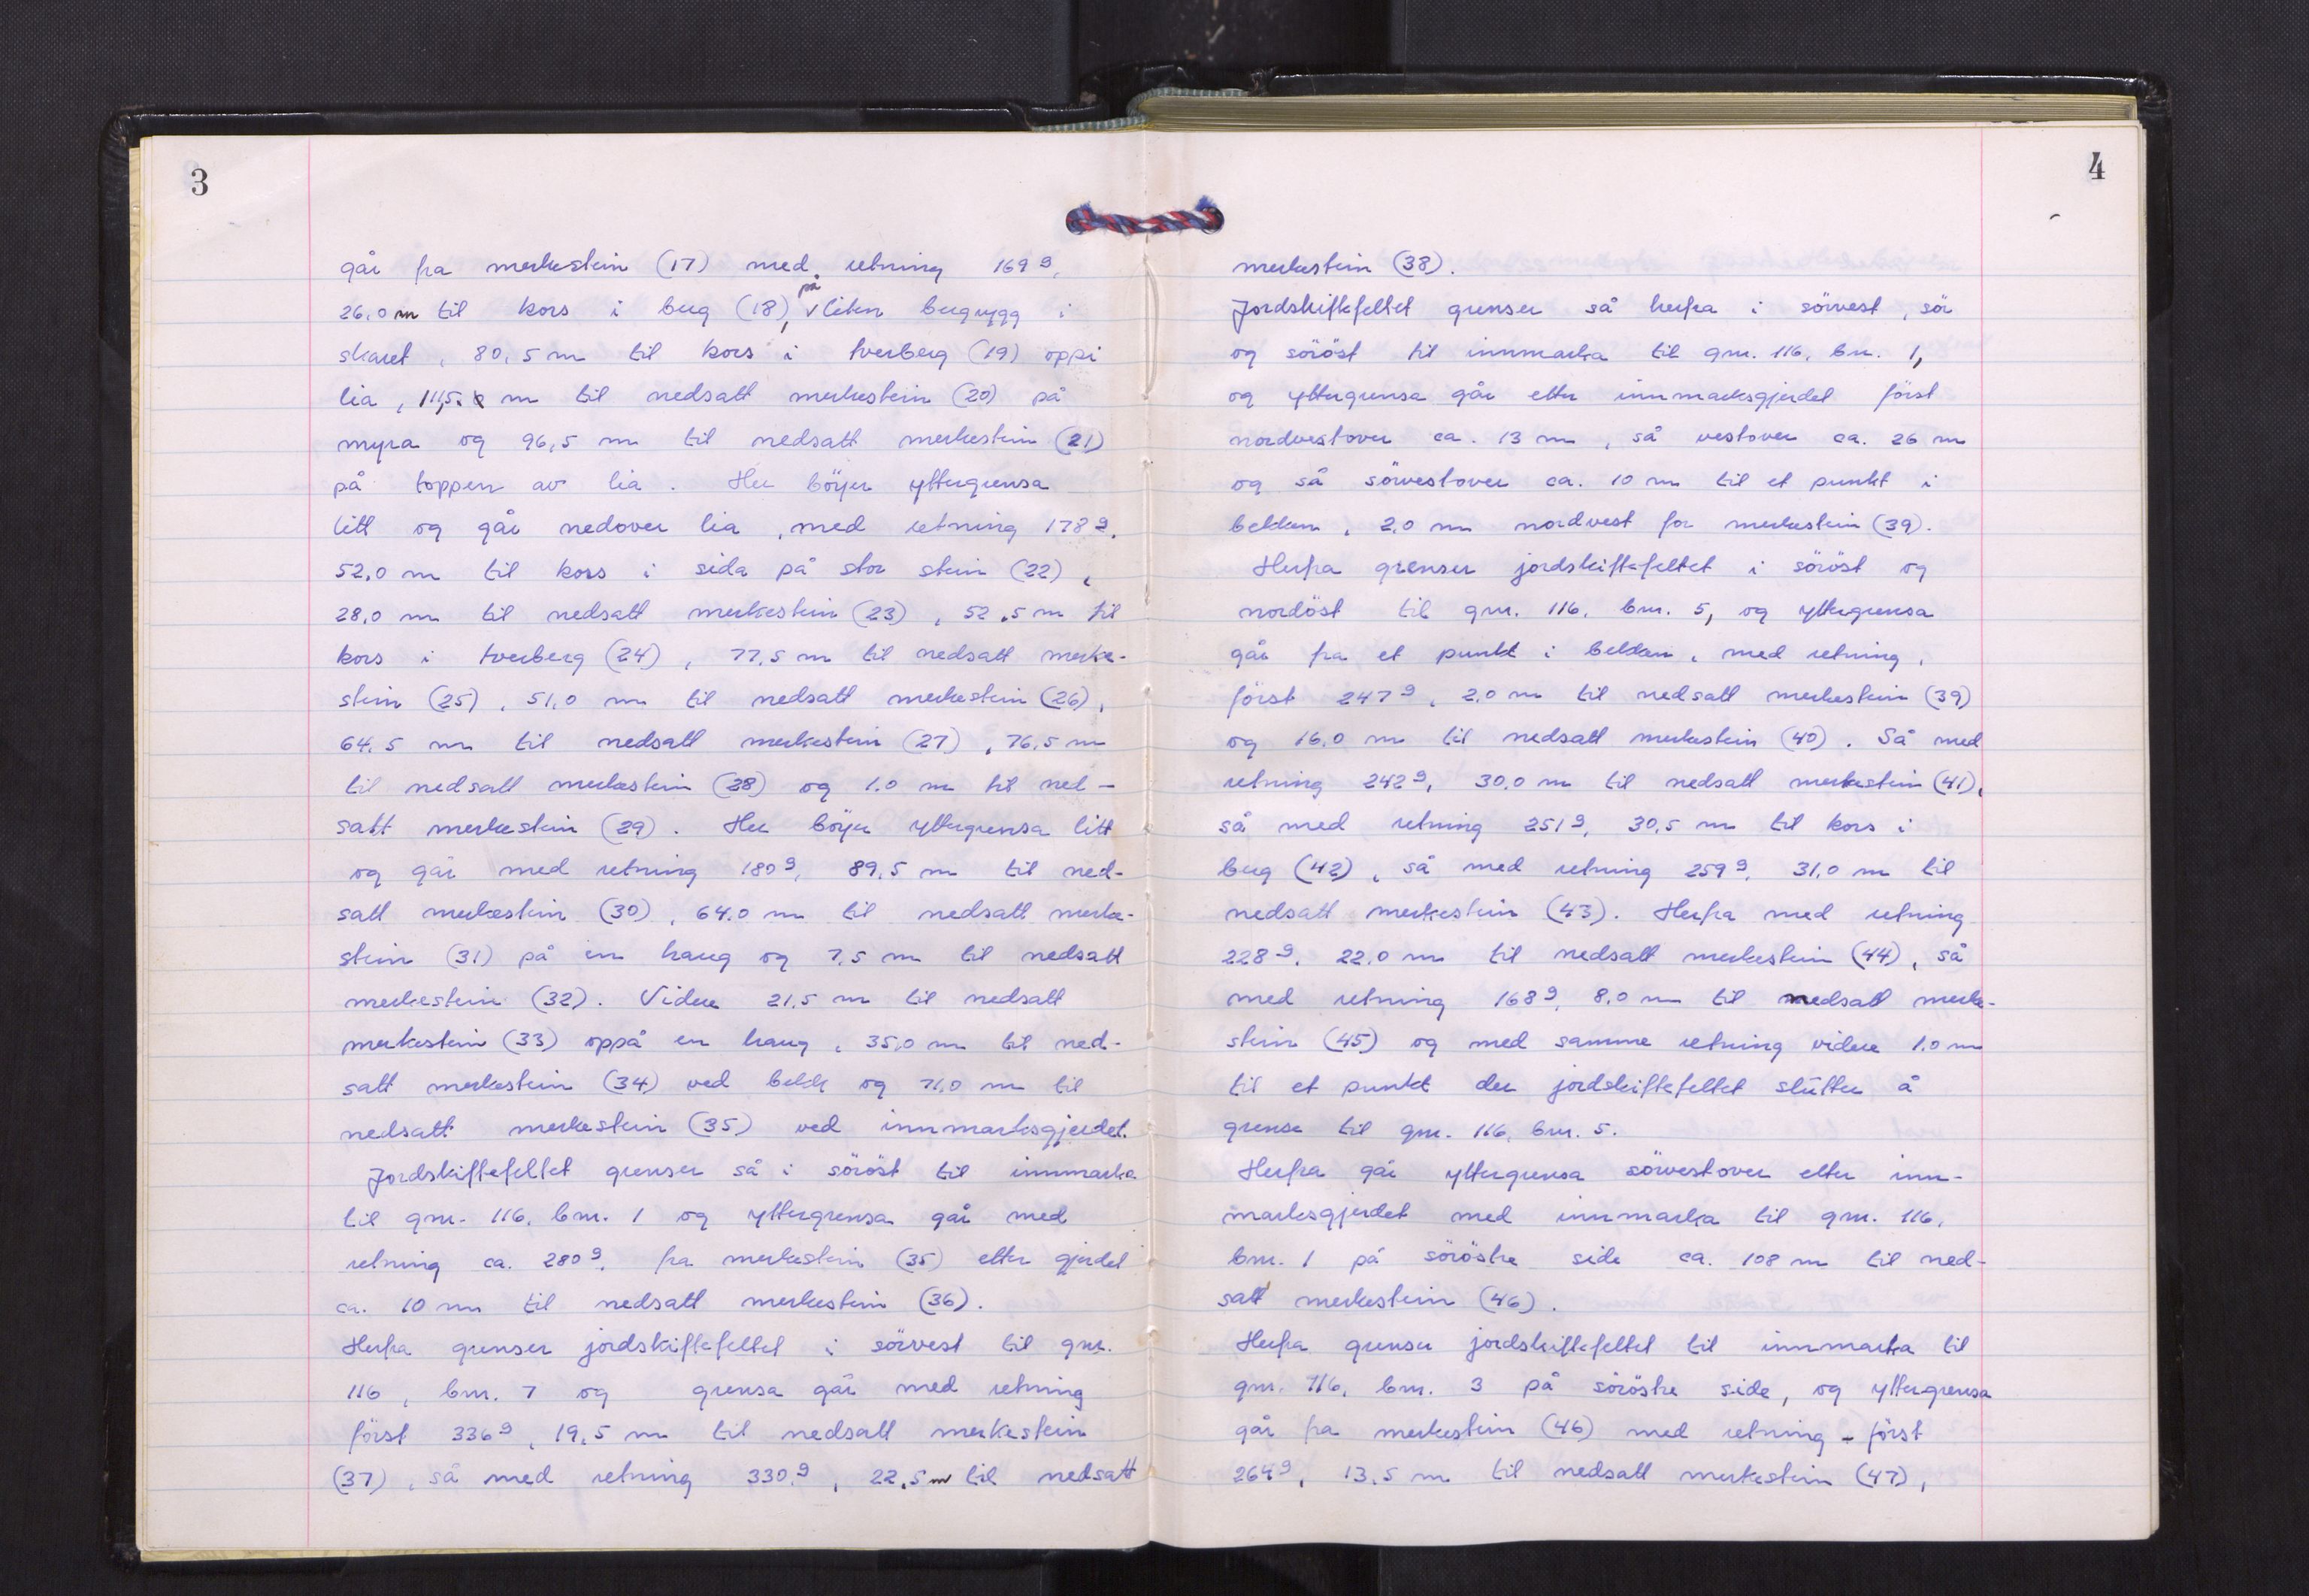 3
går fra merkestein (17) med retning 169 g,
26,0 m til kors i berg (18), på liten bergrygg i
skaret, 80,5 m til kors i tverberg (19) oppi
lia, 111,5 m til nedsatt merkestein (20) på
myra og 96,5 m til nedsatt merkestein (21)
på toppen av lia. Her böyer yttergrensa
litt og går nedover lia, med retning 178 g,
52,0 m til kors i sida på stor stein (22),
28,0 m til nedsatt merkestein (23), 52,5 m til
kors i tverberg (24), 77,5 m til nedsatt merke-
stein (25), 51,0 m til nedsatt merkestein (26),
64,5 m til nedsatt merkestein (27), 76,5 m
til nedsatt merkestein (28) og 1,0 m til ned-
satt merkestein (29). Her böyer yttergrensa litt
og går med retning 180 g, 89,5 m til ned-
satt merkestein (30), 64,0 m til nedsatt merke-
stein (31) på en haug og 7,5 m til nedsatt
merkestein (32). Videre 21,5 m til nedsatt
merkestein (33) oppå en haug, 35,0 m til ned-
satt merkestein (34) ved bekk og 71,0 m til
nedsatt merkestein (35) ved innmarksgjerdet.
Jordskiftefeltet grenser så i söröst til innmarka
til gnr. 116, bnr. 1 og yttergrensa går med
retning ca. 280 g, fra merkestein (35) etter gjerdet
ca. 10 m til nedsatt merkestein (36).
Herfra grenser jordskiftefeltet i sörvest til gnr.
116, bnr. 7 og grensa går med retning
först 336 g, 19,5 m til nedsatt merkestein
(37), så med retning 330 g, 22,5 m til nedsatt
4
merkestein (38).
Jordskiftefeltet grenser så herfra i sörvest, sör
og söröst til innmarka til gnr. 116, bnr. 1,
og yttergrensa går etter innmarksgjerdet först
nordvestover ca. 13 m, så vestover ca. 26 m
og så sörvestover ca. 10 m til et punkt i
bekken, 2,0 m nordvest for merkestein (39).
Herfra grenser jordskiftefeltet i söröst og
nordöst til gnr. 116, bnr. 5, og yttergrensa
går fra et punkt i bekken, med retning,
först 247 g, 2,0 m til nedsatt merkestein (39)
og 16,0 m til nedsatt merkestein (40). Så med
retning 242 g, 30,0 m til nedsatt merkestein (41),
så med retning 251 g, 30,5 m til kors i
berg (42), så med retning 259 g, 31,0 m til
nedsatt merkestein (43). Herfra med retning
228 g, 22,0 m til nedsatt merkestein (44), så
med retning 168 g, 8,0 m til nedsatt merke-
stein (45) og med samme retning videre 1,0 m
til et punkt der jordskiftefeltet slutter å
grense til gnr. 116, bnr. 5.
Herfra går yttergrensa sörvestover etter inn-
marksgjerdet med innmarka til gnr. 116,
bnr. 1 på söröstre side ca. 108 m til ned-
satt merkestein (46).
Herfra grenser jordskiftefeltet til innmarka til
gnr. 116, bnr. 3 på söröstre side, og yttergrensa
går fra merkestein (46) med retning - först
264 g, 13,5 m til nedsatt merkestein (47),